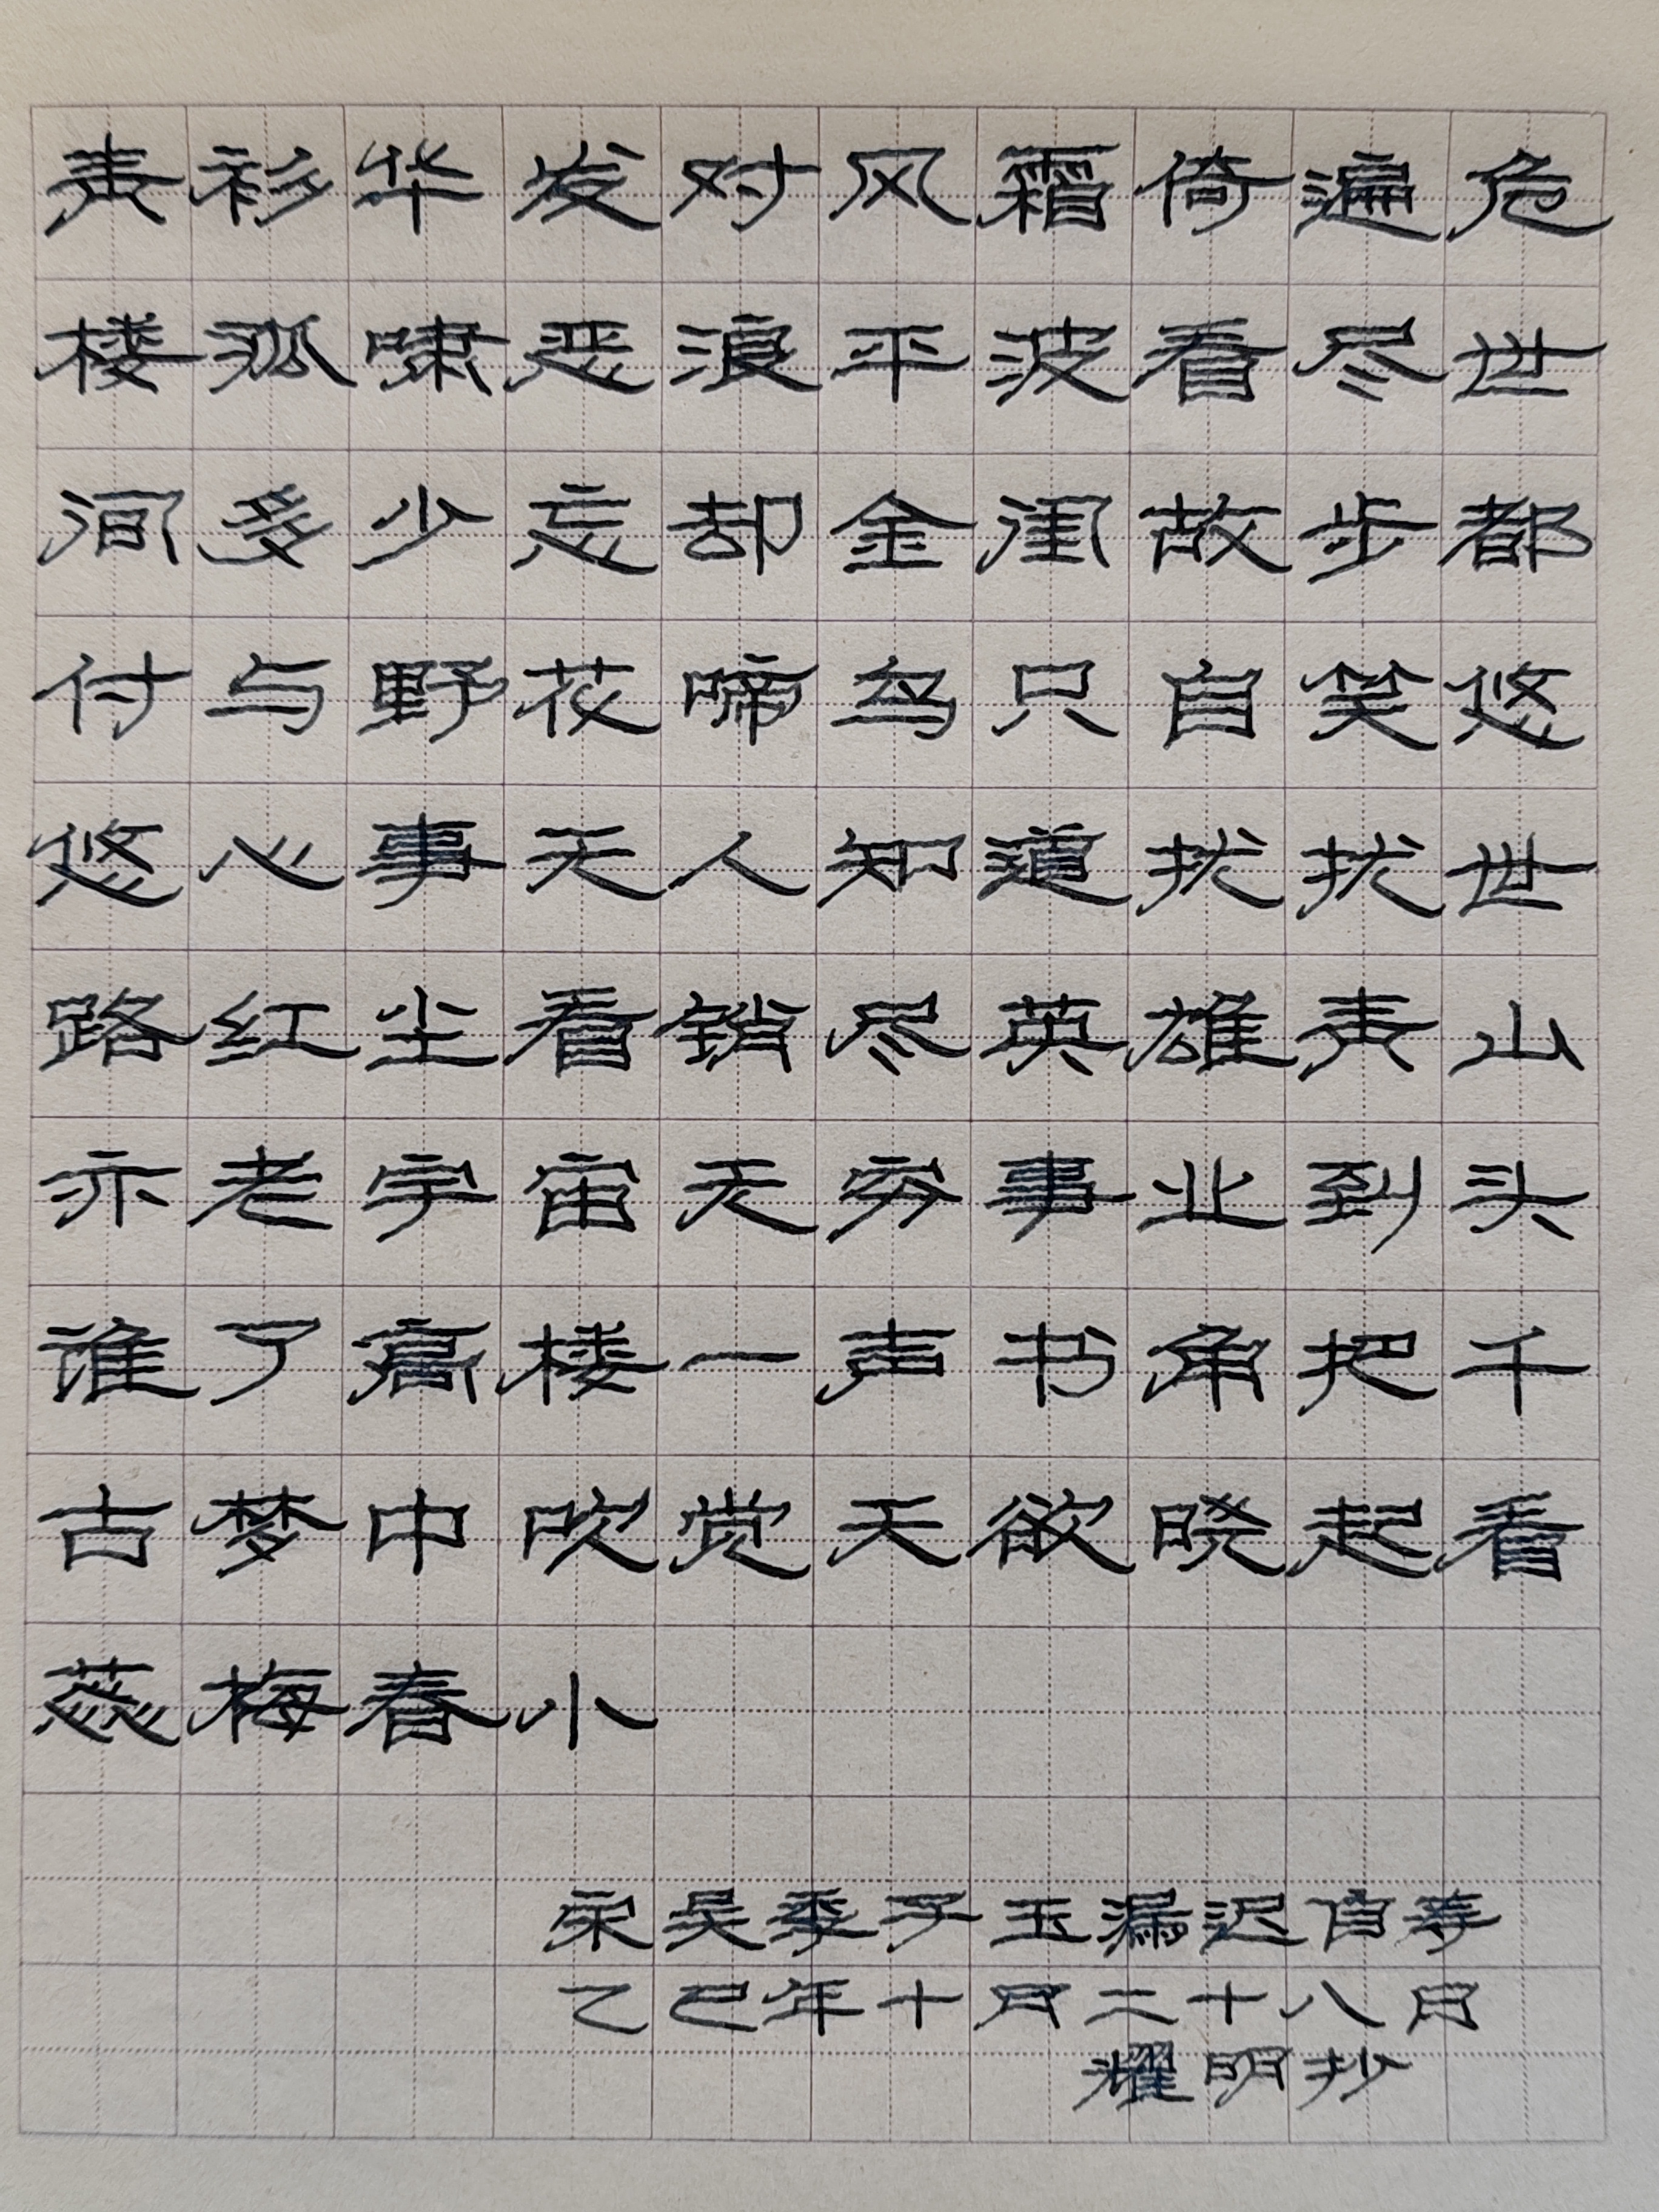 青衫华发对风霜倚遍危
楼孤啸恶浪平波看尽世
间多少忘却金闺故步都
付与野花啼鸟只自笑悠
悠心事无人知道扰扰世
路红尘看销尽英雄青山
亦老宇宙无穷事业到头
谁了高楼一声书角把千
古梦中吹觉天欲晓起看
蕊梅春小
宋吴季子玉漏迟自寿
乙巳年十月二十八日
耀明抄